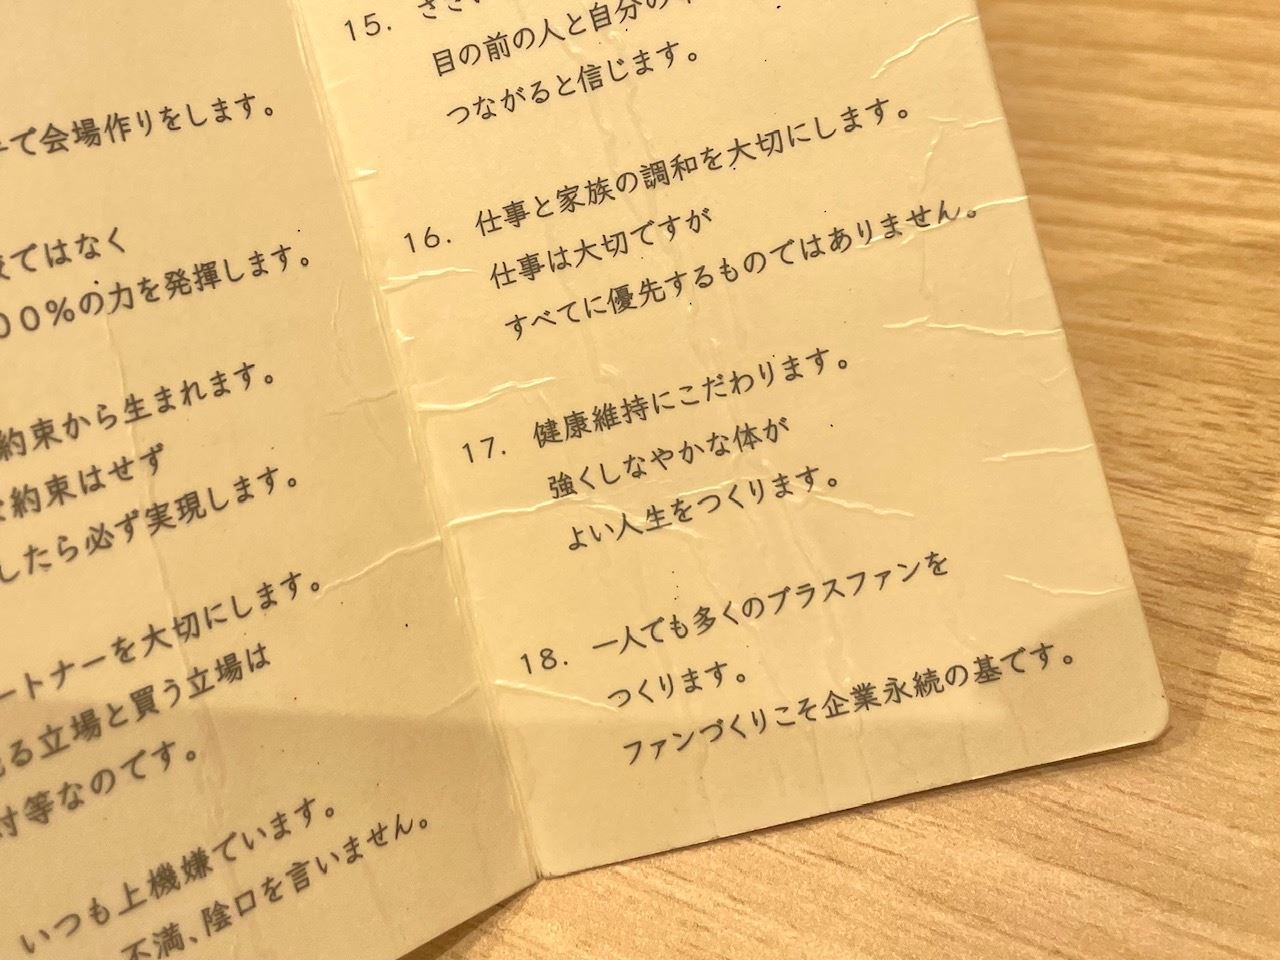 で会場作りをします。
ではなく
00%の力を発揮します。
約束から生まれます。
約束はせず
したら必ず実現します。
ートナーを大切にします。
る立場と買う立場は
対等なのです。
いつも上機嫌でいます。
不満、陰口を言いません。
15. ささい
目の前の人と自分の
つながると信じます。
16. 仕事と家族の調和を大切にします。
仕事は大切ですが
すべてに優先するものではありません。
17. 健康維持にこだわります。
強くしなやかな体が
よい人生をつくります。
18. 一人でも多くのプラスファンを
つくります。
ファンづくりこそ企業永続の基です。